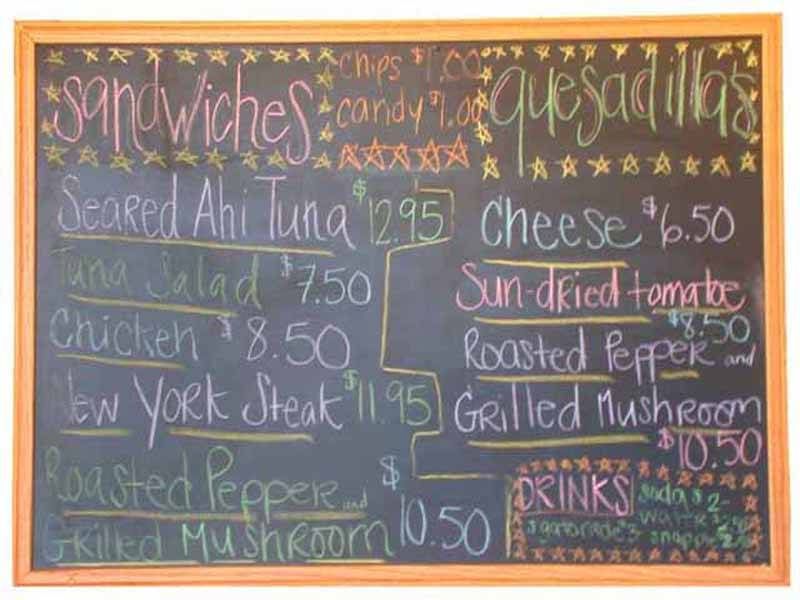 Sandwiches
chips $1.00
candy $1.00
Seared Ahi Tuna $12.95
Tuna Salad $7.50
Chicken $8.50
New York Steak $11.95
Roasted Pepper and
Grilled Mushroom $10.50
quesadilla's
Cheese $6.50
Sun-dried tomatoe
$8.50
Roasted Pepper and
Grilled Mushroom
$10.50
DRINKS
soda $2-
gatorade $3-